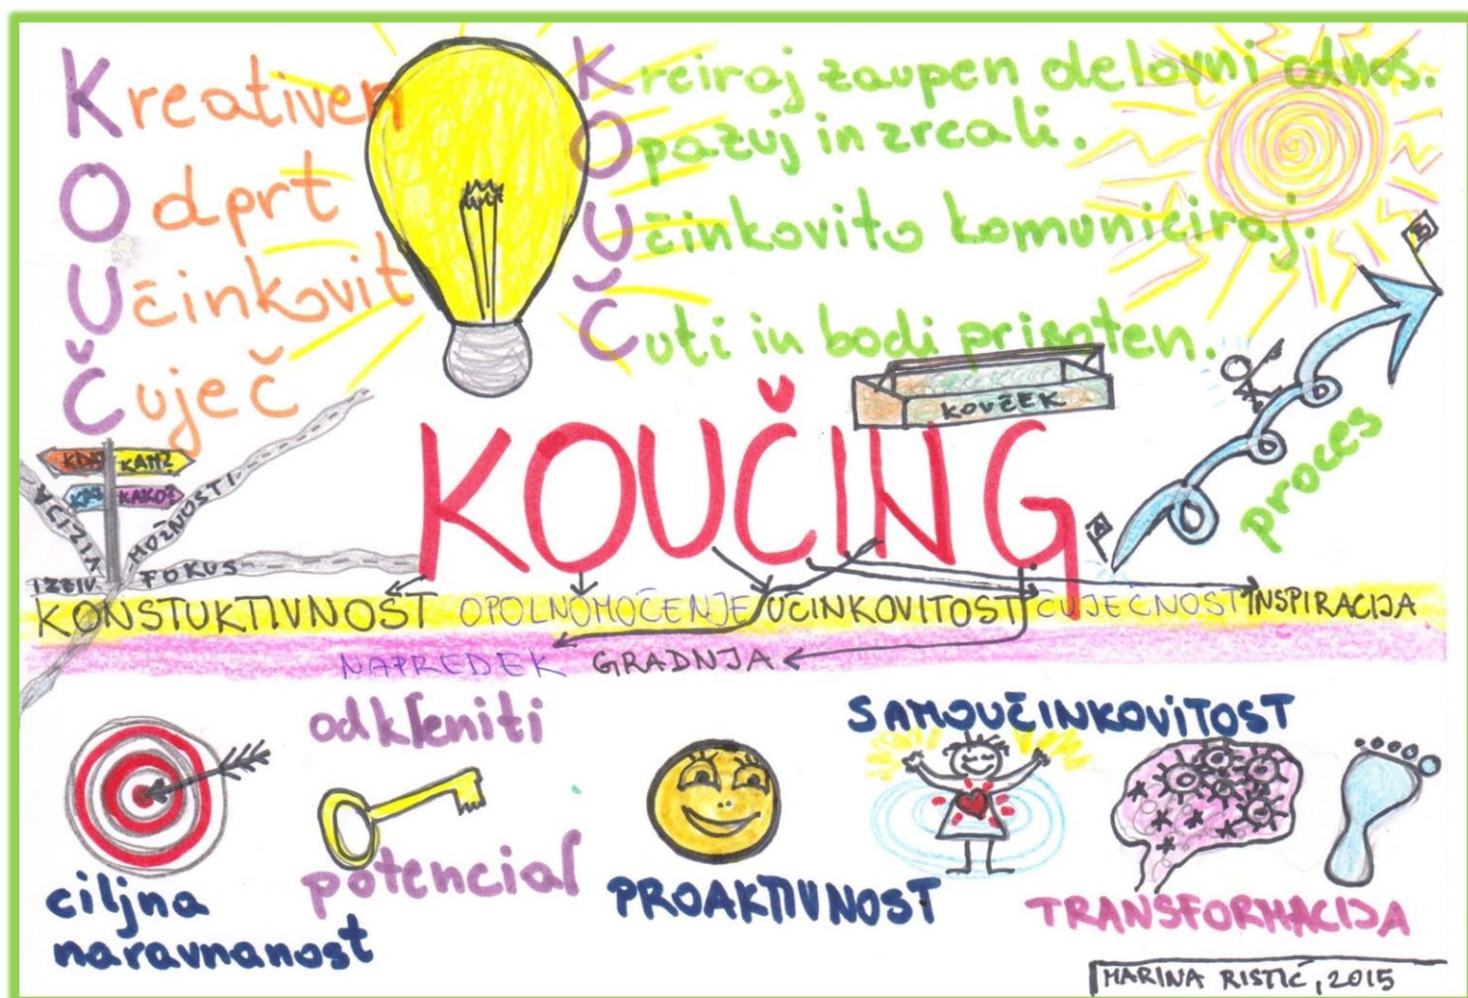 Kreativen
Odprt
Učinkovit
Čuječ
Kreiraj zaupen delovni odnos.
Opazuj in zrcali.
Učinkovito komuniciraj.
Čuti in bodi prisoten.
KOVČEK
KOUČING
B
proces
A
KAM?
KAKO?
MOŽNOSTI
VIZIJA
IZZIV
FOKUS
KONSTUKTIVNOST OPOLNOMOČENJE UČINKOVITOST ČUJEČNOST INSPIRACIJA
NAPREDEK GRADNJA
odkleniti
potencial
SAMOUČINKOVITOST
ciljna
naravnanost
PROAKTIVNOST
TRANSFORMACIJA
MARINA RISTIĆ, 2015